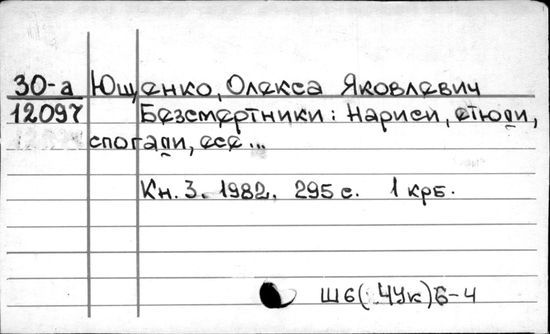 30-а Ющенко, Олекса Яковлевич
12097 Безсмертники: Нариси, етюди,
спогади, есе...
Кн. 3. 1982. 295 с. 1 крб.
Ш6(4Ук)6-4